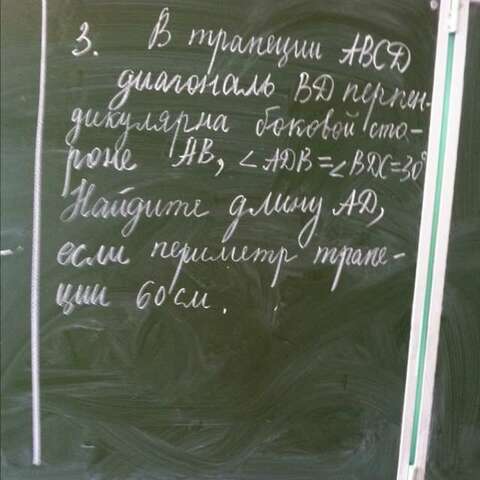 3. В трапеции ABCD
диагональ BD перпен-
дикулярна боковой сто-
роне AB, ∠ADB=∠BDC=30°
Найдите длину AD,
если периметр трапе-
ции 60 см.